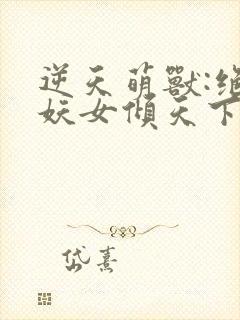 逆天萌獸:絕
妖女傾天下
岱熹